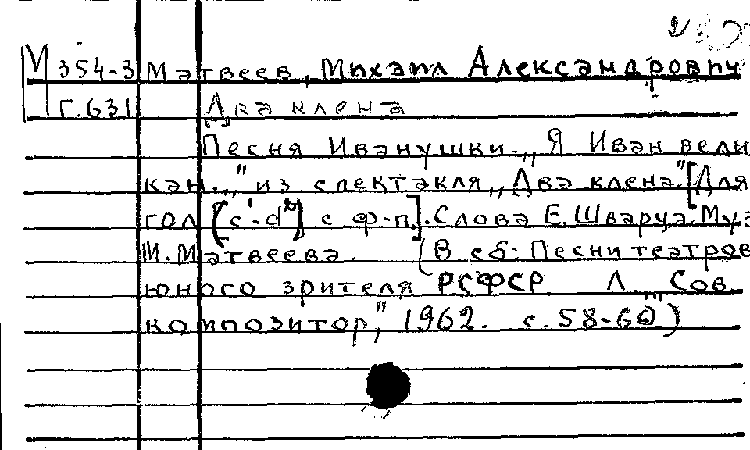 М 354-3 Матвеев, Михаил Александрович
Г.631 Два клена
Песня Иванушки „Я Иван вели
кан..." из спектакля „Два клена" [Для
гол (c'-d²) с ф-п]. Слова Е. Шварца. Муз
М. Матвеева. (В сб: Песни театров
юного зрителя РСФСР Л. „Сов.
композитор," 1962. с. 58-60)